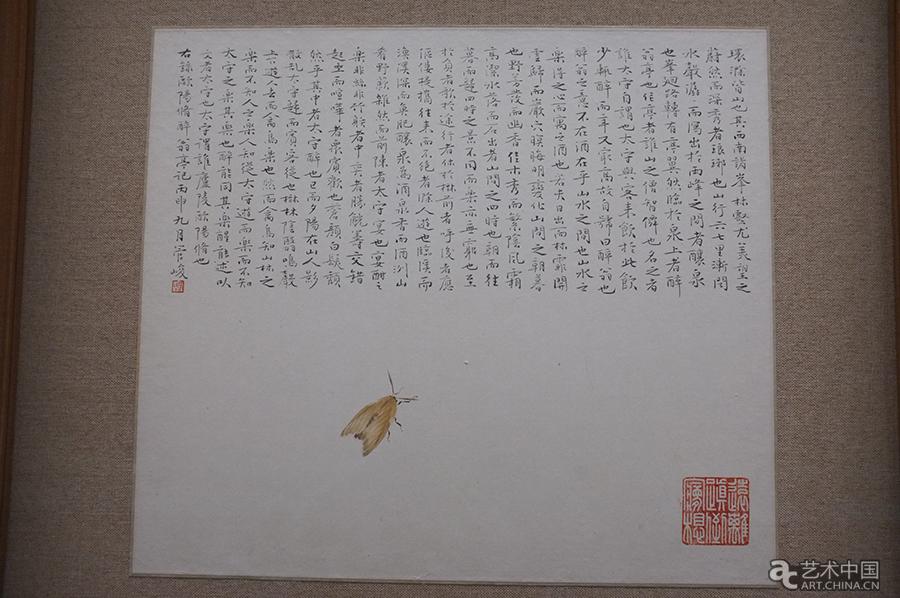 環滁皆山也其西南諸峯林壑尤美望之
蔚然而深秀者瑯琊也山行六七里漸聞
水聲潺〻而瀉出於兩峰之間者釀泉
也峯迴路轉有亭翼然臨於泉上者醉
翁亭也作亭者誰山之僧智僊也名之者
誰太守自謂也太守與客来飲於此飲
少輒醉而年又最高故自號曰醉翁也
醉翁之意不在酒在乎山水之間也山水之
樂得之心而寓之酒也若夫日出而林霏開
雲歸而巖穴暝晦明變化山間之朝暮
也野芳發而幽香佳木秀而繁陰風霜
高潔水落而石出者山間之四時也朝而往
暮而歸四時之景不同而樂亦無窮也至
於負者歌於途行者休於樹前者呼後者應
傴僂提攜往来而不絕者滁人遊也臨溪而
漁溪深而魚肥釀泉為酒泉香而酒洌山
肴野蔌雜然而前陳者太守宴也宴酣之
樂非絲非竹射者中奕者勝觥籌交錯
起坐而喧嘩者眾賓歡也蒼顏白髮頹
然乎其中者太守醉也已而夕陽在山人影
散亂太守歸而賓客從也樹林陰翳鳴聲
上下遊人去而禽鳥樂也然而禽鳥知山林之
樂而不知人之樂人知從太守遊而樂而不知
太守之樂其樂也醉能同其樂醒能述以
文者太守也太守謂誰廬陵歐陽脩也
右錄歐陽脩醉翁亭記丙申九月管峻
遠離
顛倒
夢想
艺术中国
ART.CHINA.CN